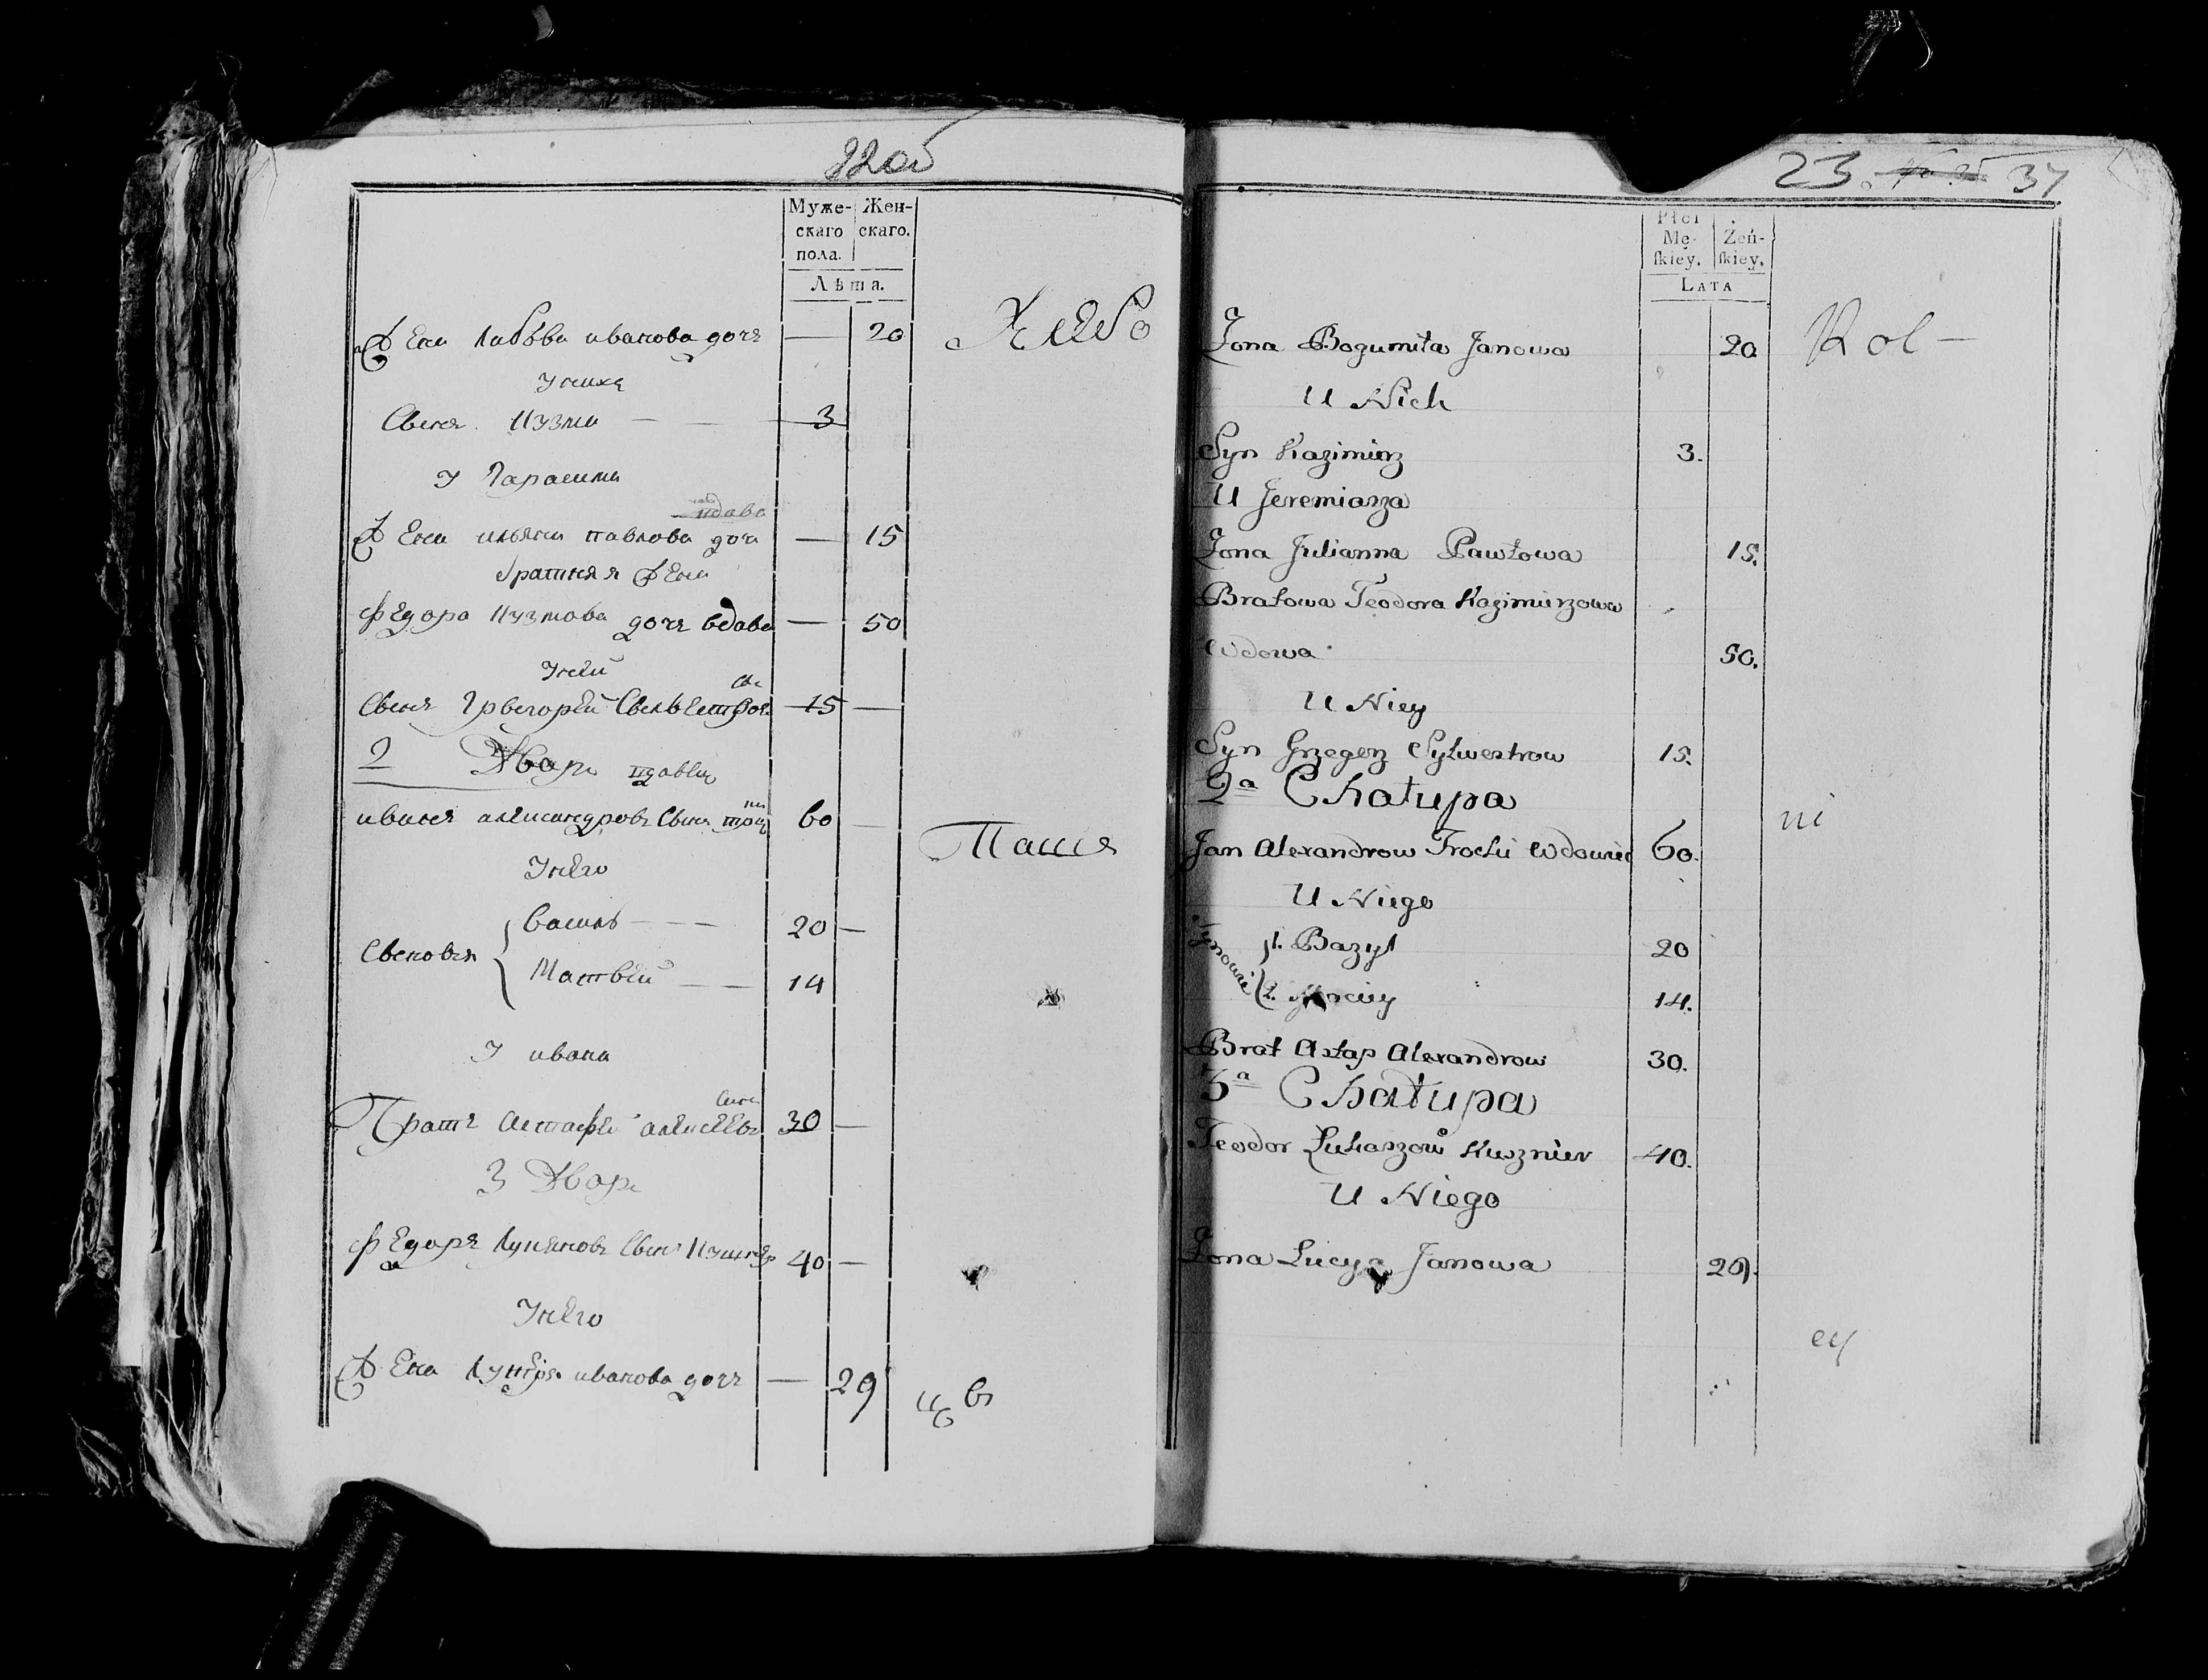 22об
Муже-
скаго
пола.
Жен-
скаго.
Лѣта.
Жена Любовь иванова дочь — 20
Хлебо
У нихъ
Сынъ Кузма — — 3
У Гарасима
Жена ульяна павлова дочь — 15
братняя Жена
Федора Кузмова дочь вдова — 50
У ней
Сынъ Грегорей Сильвестров 15 —
2 Дворъ
иванъ александровъ Сынъ 60 —
Пашц
У него
Сыновья
Василь — — 20 —
Матвей — — 14
У ивана
Братъ Астафей алексеевъ Сынъ 30 —
3 Дворъ
Федоръ Лукяновъ Сынъ Кушнер 40 —
У него
Жена иванова дочь — 29
23. 37
Płci
Mę-
skiey.
Żeń-
skiey.
LATA
Żona Bogumiła Janowa 20
Rol-
U Nich
Syn Kazimierz 3.
U Jeremiasza
Żona Julianna Pawłowa 15.
Bratowa Teodora Kazimierzowa
Wdowa 50.
U Niey
Syn Grzegorz Sylwestrow 15.
2a Chałupa
ni
Jan Alexandrow Wdowiec 60.
U Niego
Synowie
1. Bazyl 20
2. Maciey 14.
Brat Astap Alexandrow 30.
3a Chałupa
Teodor Łukaszow Kusznier 40.
U Niego
Żona Łucya Janowa 29.
cy